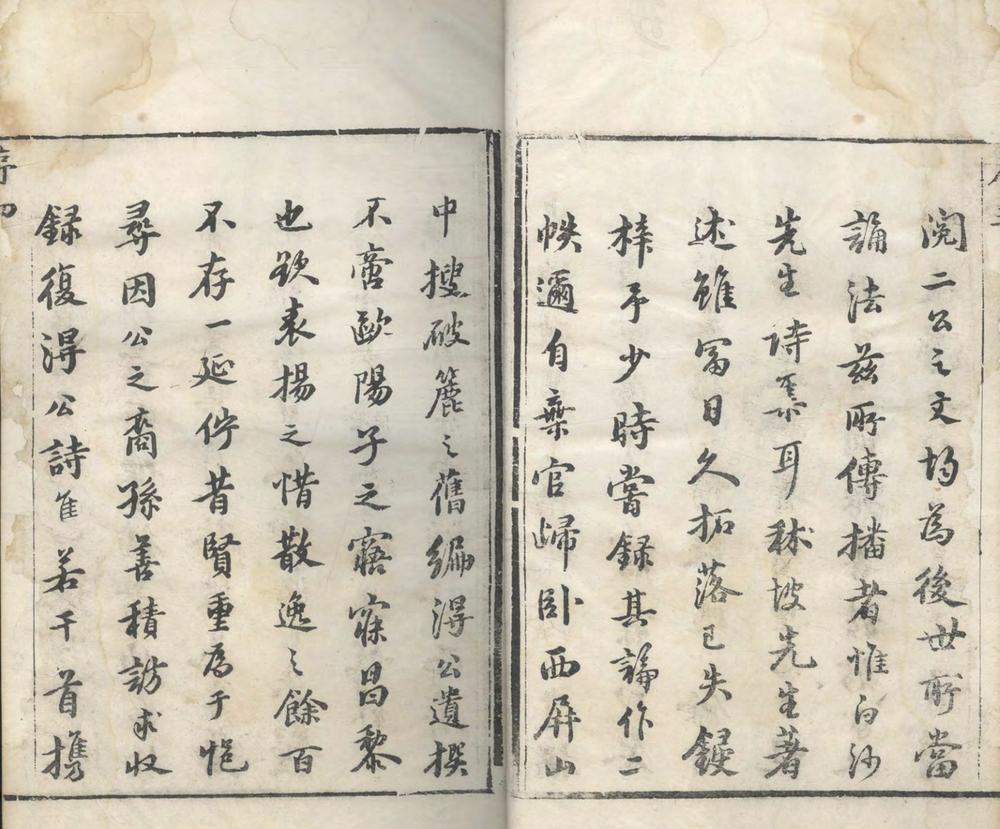 閱二公之文均為後世所當
誦法茲所傳播者惟白沙
先生詩集耳秫坡先生著
述雖富日久拓落已失鋟
梓予少時嘗錄其論作二
帙邇自棄官歸卧西屏山
中搜破簏之舊編得公遺撰
不啻歐陽子之寤寐昌黎
也欲表揚之惜散逸之餘百
不存一延佇昔賢重為于悒
尋因公之裔孫善積訪求收
錄復得公詩隹若干首携
序四